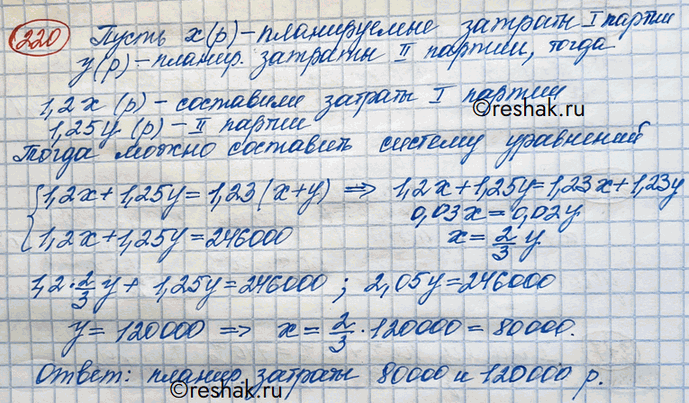 220 Пусть x(р) – планируемые затраты I партии
y(р) – планир. затраты II партии, тогда
1,2x (р) – составили затраты I партии
©reshak.ru
1,25y (р) – II партии
Тогда можно составить систему уравнений
{1,2x + 1,25y = 1,23(x+y) ⇒ 1,2x + 1,25y = 1,23x + 1,23y
0,03x = 0,02y
1,2x + 1,25y = 246000 x = 2/3 y
1,2 · 2/3 y + 1,25y = 246000 ; 2,05y = 246000
y = 120000 ⇒ x = 2/3 · 120000 = 80000.
Ответ: планир. затраты 80000 и 120000 р.
©reshak.ru